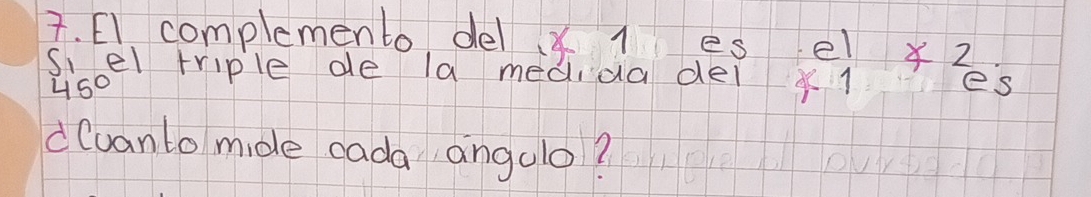 7. El complemento del ∡ 1 es el ∡ 2.
Si el triple de la medida del ∡ 1 es
45°
¿Cuanto mide cada ángulo?